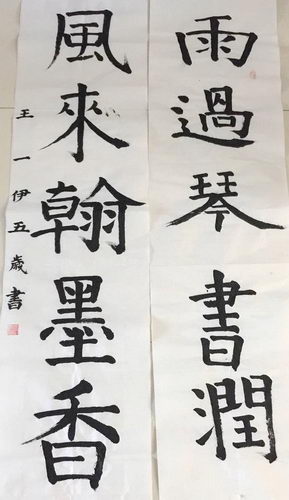 雨過琴書潤
風來翰墨香
王一伊五歲書